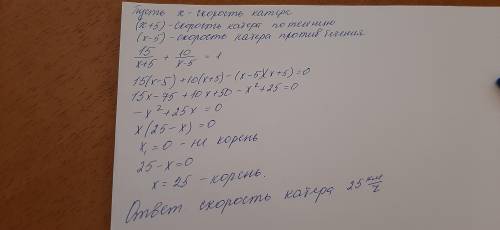 Пусть x - скорость катера
(x+5) - скорость катера по течению
(x-5) - скорость катера против течения
15/(x+5) + 10/(x-5) = 1
15(x-5)+10(x+5)-(x-5)(x+5)=0
15x-75+10x+50-x²+25=0
-x²+25x=0
x(25-x)=0
x₁=0 - не корень
25-x=0
x=25 - корень.
Ответ скорость катера 25 км/ч